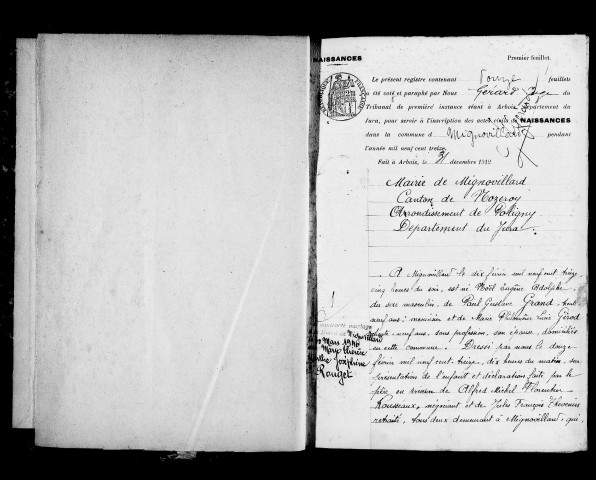 NAISSANCES
Premier feuillet.
Le présent registre contenant douze feuillets
a été coté et paraphé par Nous Gérard Juge du
Tribunal de première instance séant à Arbois département du
Jura, pour servir à l'inscription des actes civils de NAISSANCES
dans la commune d Mignovillard pendant
l'année mil neuf cent treize.
Fait à Arbois, le 31 décembre 1912
Mairie de Mignovillard
Canton de Nozeroy
Arrondissement de Poligny
Département du Jura
A Mignovillard le dix février mil neuf cent treize
cinq heures du soir, est né Noël Eugène Adolphe
du sexe masculin, de Paul Gustave Grand,
neuf ans, menuisier et de Marie Philomène Gérod
neuf ans, sans profession, son épouse domiciliés
en cette commune. Dressé par nous le douze
février mil neuf cent treize, dix heures du matin, sur
présentation de l'enfant et déclaration faite par le
père, en présence de Alfred Michel Florentin
Rousseaux, négociant et de Jules François Thevenin
retraité, tous deux demeurant à Mignovillard, qui,
1
mariage
Mignovillard
Mars 1940
Marie
Joséphine
Rouget